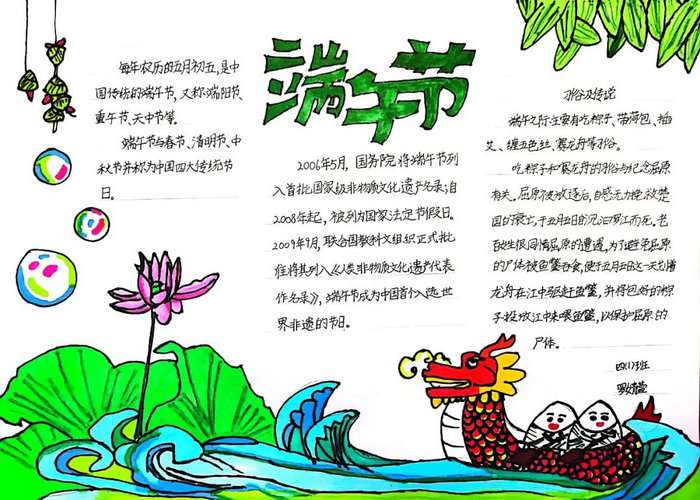 端午节
每年农历的五月初五,是中
国传统的端午节,又称端阳节、
重午节、天中节等。
端午节与春节、清明节、中
秋节并称为中国四大传统节
日。
2006年5月,国务院将端午节列
入首批国家级非物质文化遗产名录;自
2008年起,被列为国家法定节假日。
2009年9月,联合国教科文组织正式批
准将其列入《人类非物质文化遗产代表
作名录》,端午节成为中国首个入选世
界非遗的节日。
习俗及传说
端午之际主要有吃粽子、带荷包、插
艾、缠五色丝、赛龙舟等习俗。
吃粽子和赛龙舟的习俗与纪念屈原
有关。屈原被放逐后,自感无力挽救楚
国的衰亡,于五月五日的汨罗江而死。老
百姓很同情屈原的遭遇,为了避免屈原
的尸体被鱼鳖吞食,便于五月五日这一天划着
龙舟在江中驱赶鱼鳖,并将包好的粽
子投放江中来喂鱼鳖,以保护屈原的
尸体。
四(1)班